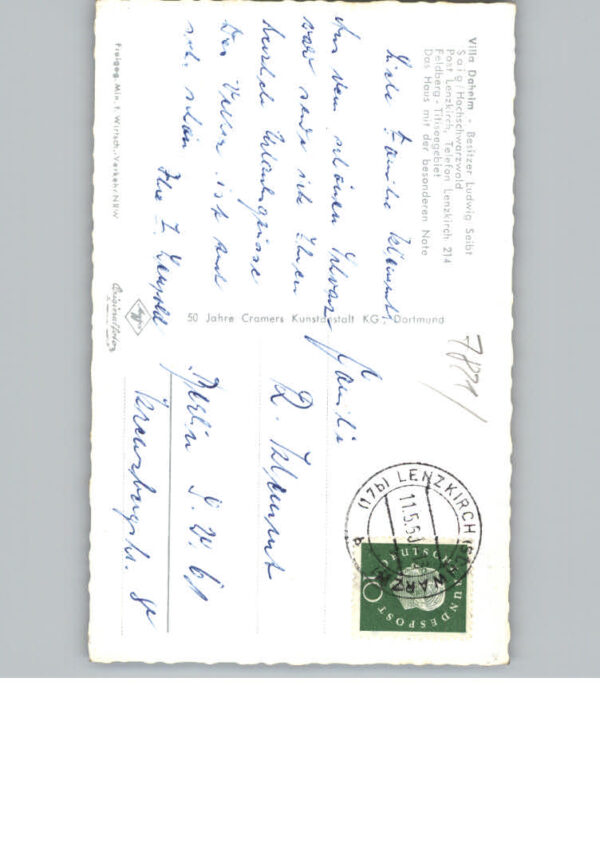 Villa Daheim - Besitzer Ludwig Seibt
Saig/Hochschwarzwald
Post Lenzkirch, Telefon Lenzkirch 214
Feldberg-Titiseegebiet
Das Haus mit der besonderen Note
Liebe Familie Klemunt
Aus dem schönen Schwarz
wald sende ich Ihnen
herzliche Urlaubsgrüsse
Das Wetter ist auch
sehr schön
Ihre
Freigeg. Min. f. Wirtsch./Verkehr NRW
50 Jahre Cramers Kunstanstalt KG., Dortmund
Originalfoto
7871/
Familie
Klemunt
Berlin S.W. 61
Kreuzbergstr.
(17b) LENZKIRCH (SCHWARZW)
11.5.60
b
10
DEUTSCHE BUNDESPOST